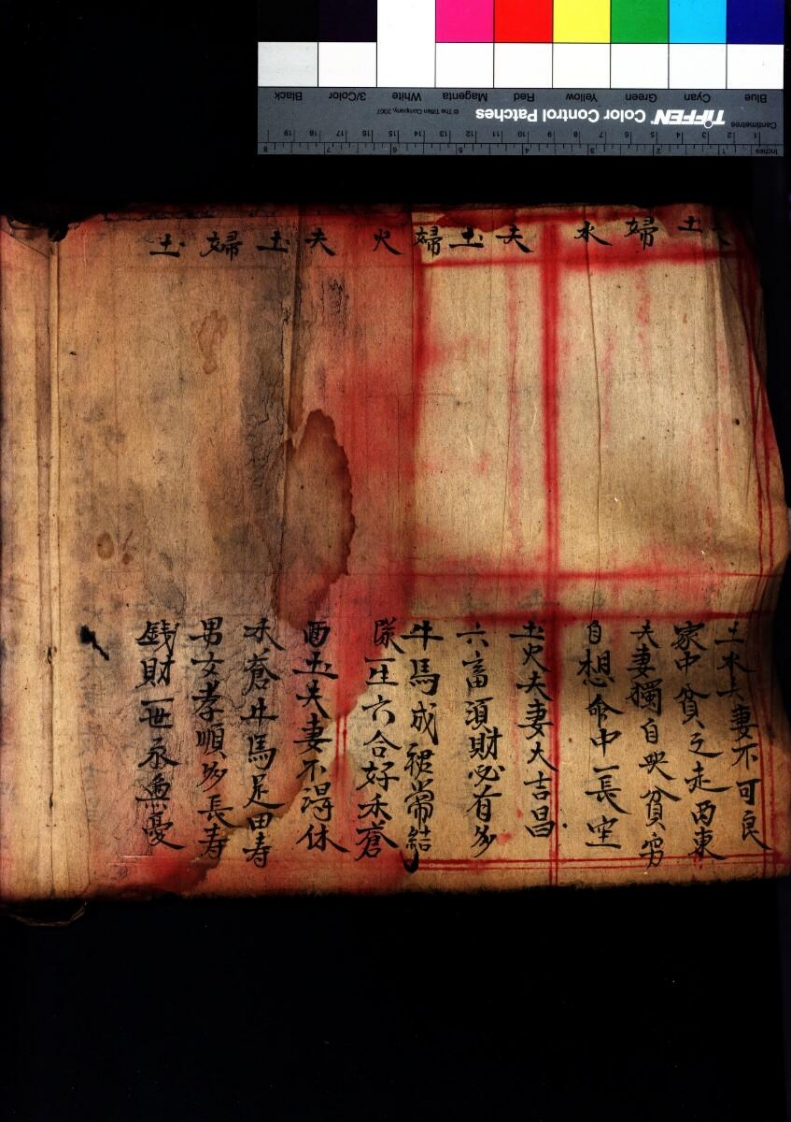 夫土婦水
土水夫妻不可良
家中貧乏走西東
夫妻獨自受貧窮
自想命中一長空
夫土婦火
土火夫妻大吉昌
六畜須財必有多
牛馬成裙常結
隊一生六合好禾蒼
夫土婦土
両土夫妻不得休
禾蒼牛馬足田寿
男女孝順多長寿
銭財一世永無憂
Blue
Cyan
Green
Yellow
Red
Magenta
White
3/Color
Black
TIFFEN Color Control Patches
© The Tiffen Company, 2007
Centimetres
1 2 3 4 5 6 7 8 9 10 11 12 13 14 15 16 17 18 19
Inches
1 2 3 4 5 6 7 8